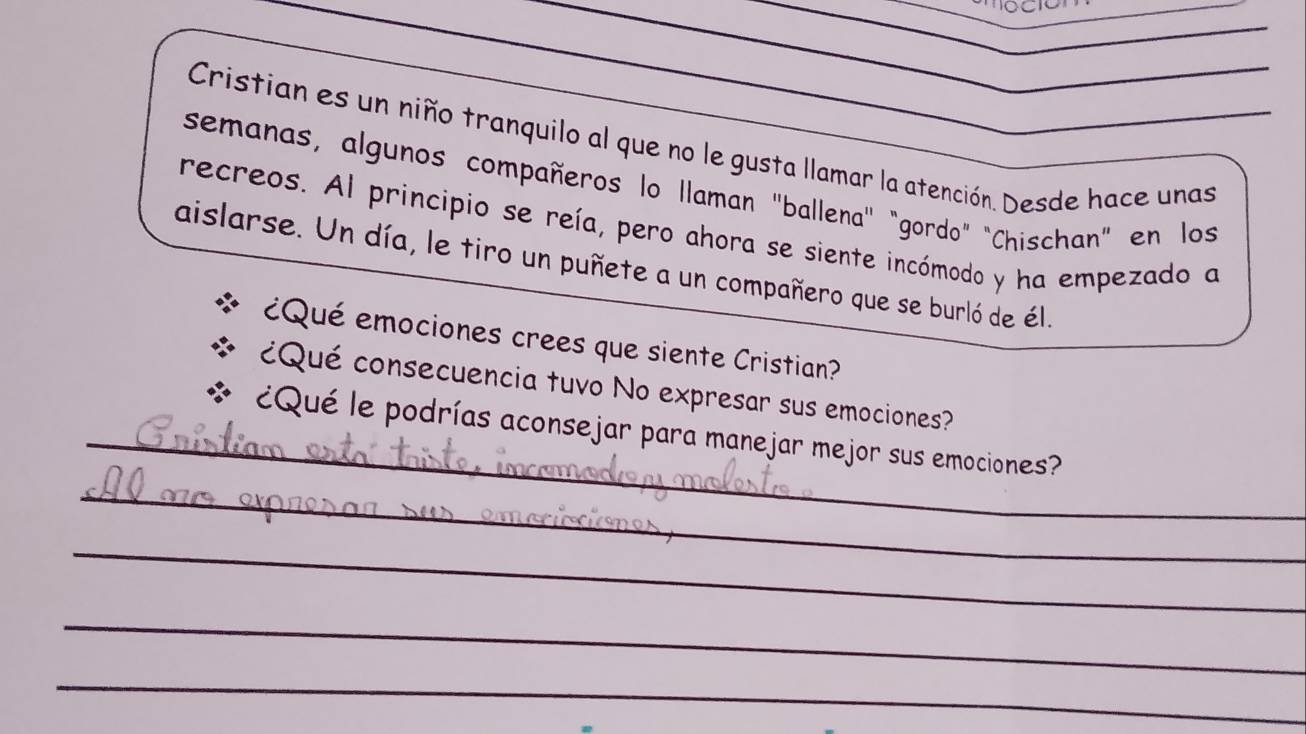 Cristian es un niño tranquilo al que no le gusta llamar la atención. Desde hace unas
semanas, algunos compañeros lo llaman "ballena" "gordo" "Chischan" en los
recreos. Al principio se reía, pero ahora se siente incómodo y ha empezado a
aislarse. Un día, le tiro un puñete a un compañero que se burló de él.
❖ ¿Qué emociones crees que siente Cristian?
❖ ¿Qué consecuencia tuvo No expresar sus emociones?
❖ ¿Qué le podrías aconsejar para manejar mejor sus emociones?
Cristian está triste, incomodo y molesto.
Al no expresar sus